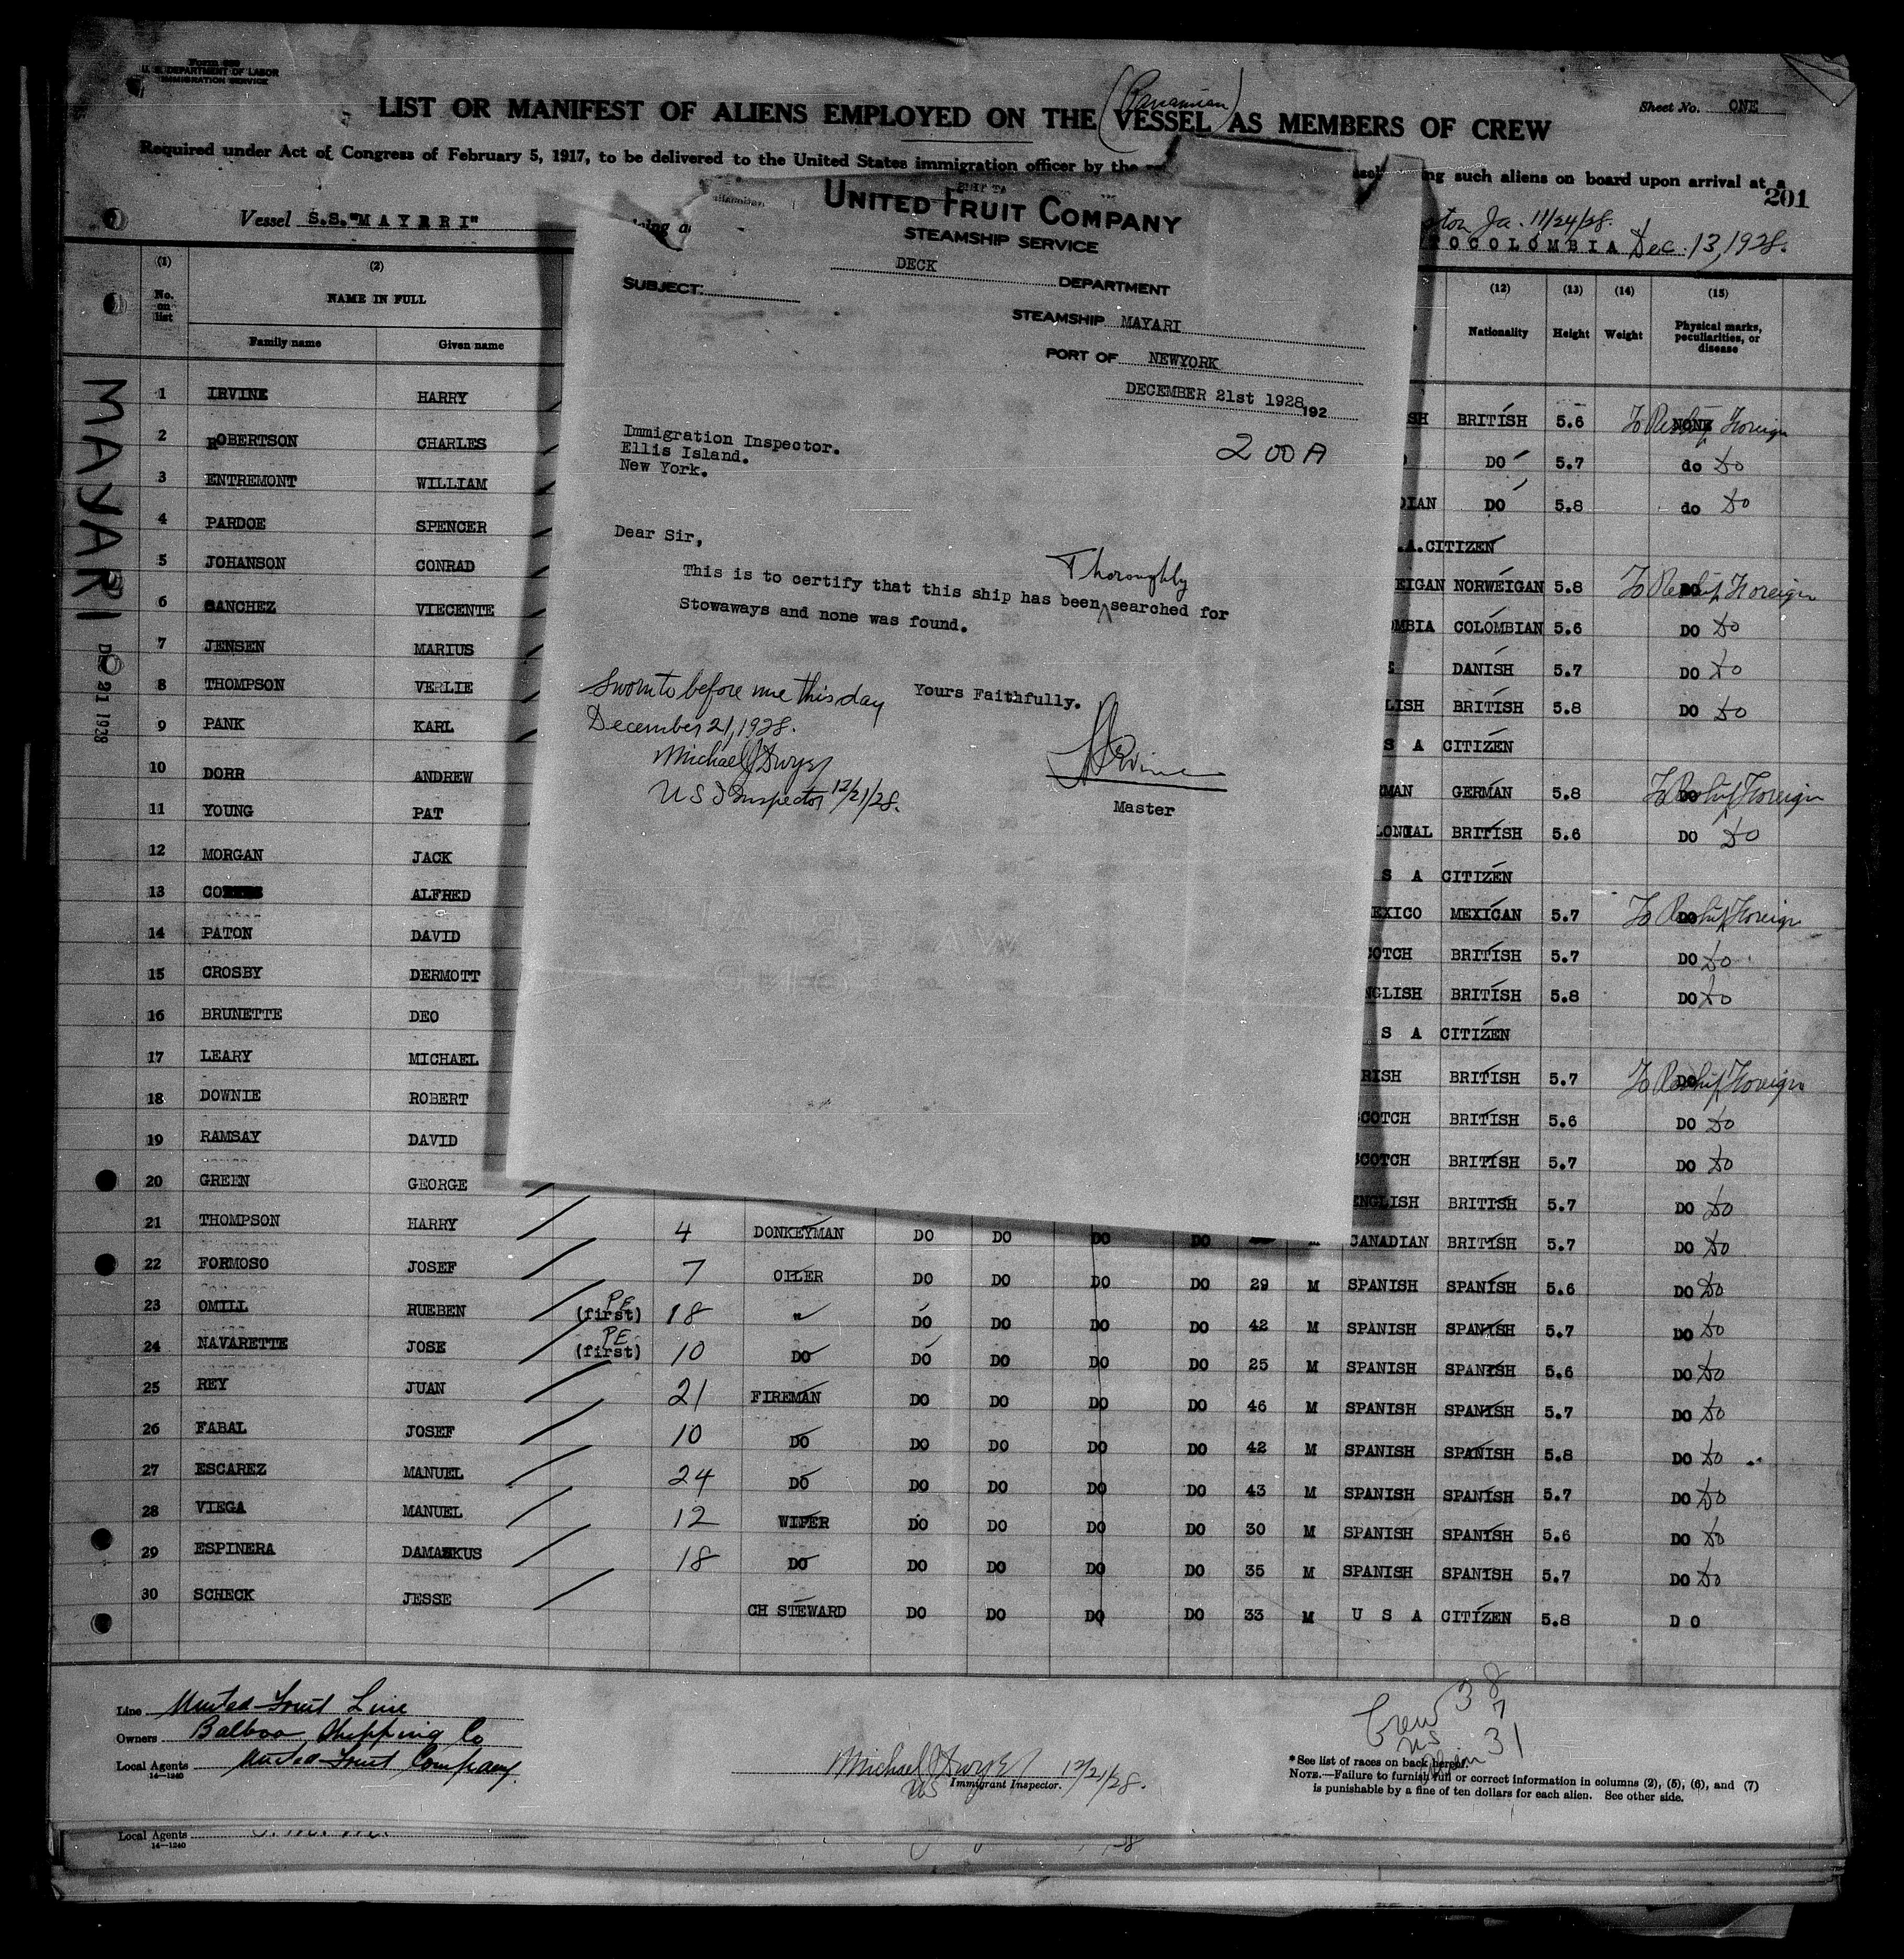 Form 689
U. S. DEPARTMENT OF LABOR
IMMIGRATION SERVICE
Sheet No. ONE
(Panamian)
LIST OR MANIFEST OF ALIENS EMPLOYED ON THE VESSEL AS MEMBERS OF CREW
Required under Act of Congress of February 5, 1917, to be delivered to the United States immigration officer by the
ng such aliens on board upon arrival at a
201
Vessel S.S."MAYARI"
ston Ja. 11/24/28.
TOCOLOMBIA Dec. 13, 1928.
UNITED FRUIT COMPANY
STEAMSHIP SERVICE
DECK DEPARTMENT
SUBJECT:
STEAMSHIP MAYARI
PORT OF NEWYORK
DECEMBER 21st 1928, 192
200A
Immigration Inspector.
Ellis Island.
New York.
Dear Sir,
Thoroughly
This is to certify that this ship has been searched for
Stowaways and none was found.
Yours Faithfully.
Sworn to before me this day
December 21, 1928.
Michael J Dwyer
U S I Inspector 12/21/28.
Master
MAYARI
DEC 21 1928
(1) (2) (12) (13) (14) (15)
No. on list NAME IN FULL Nationality Height Weight Physical marks, peculiarities, or disease
Family name Given name
1 IRVINE HARRY SH BRITISH 5.6 NONE To Reship Foreign
2 ROBERTSON CHARLES DO 5.7 do Do
3 ENTREMONT WILLIAM DIAN DO 5.8 do Do
4 PARDOE SPENCER .A.CITIZEN
5 JOHANSON CONRAD EIGAN NORWEIGAN 5.8 DO To Reship Foreign
6 SANCHEZ VIECENTE MBIA COLOMBIAN 5.6 DO Do
7 JENSEN MARIUS DANISH 5.7 DO Do
8 THOMPSON VERLIE LISH BRITISH 5.8 DO Do
9 PANK KARL S A CITIZEN
10 DORR ANDREW RMAN GERMAN 5.8 DO To Reship Foreign
11 YOUNG PAT LONIAL BRITISH 5.6 DO Do
12 MORGAN JACK S A CITIZEN
13 CO ALFRED EXICO MEXICAN 5.7 DO To Reship Foreign
14 PATON DAVID COTCH BRITISH 5.7 DO Do
15 CROSBY DERMOTT NGLISH BRITISH 5.8 DO Do
16 BRUNETTE DEO S A CITIZEN
17 LEARY MICHAEL RISH BRITISH 5.7 DO To Reship Foreign
18 DOWNIE ROBERT SCOTCH BRITISH 5.6 DO Do
19 RAMSAY DAVID SCOTCH BRITISH 5.7 DO Do
20 GREEN GEORGE ENGLISH BRITISH 5.7 DO Do
21 THOMPSON HARRY 4 DONKEYMAN DO DO DO DO M CANADIAN BRITISH 5.7 DO Do
22 FORMOSO JOSEF 7 OILER DO DO DO DO 29 M SPANISH SPANISH 5.6 DO Do
23 OMILL RUEBEN PE (first) 18 " DO DO DO DO 42 M SPANISH SPANISH 5.7 DO Do
24 NAVARETTE JOSE PE (first) 10 DO DO DO DO DO 25 M SPANISH SPANISH 5.6 DO Do
25 REY JUAN 21 FIREMAN DO DO DO DO 46 M SPANISH SPANISH 5.7 DO Do
26 FABAL JOSEF 10 DO DO DO DO DO 42 M SPANISH SPANISH 5.8 DO Do
27 ESCAREZ MANUEL 24 DO DO DO DO DO 43 M SPANISH SPANISH 5.7 DO Do
28 VIEGA MANUEL 12 WIPER DO DO DO DO 30 M SPANISH SPANISH 5.6 DO Do
29 ESPINERA DAMASKUS 18 DO DO DO DO DO 35 M SPANISH SPANISH 5.7 DO Do
30 SCHECK JESSE CH STEWARD DO DO DO DO 33 M U S A CITIZEN 5.8 D O
Line United Fruit Line
Owners Balboa Shipping Co
Local Agents United Fruit Company.
14—1240
Michael J Dwyer 12/21/28.
US Immigrant Inspector.
Crew 38
US 7
31
*See list of races on back hereof.
NOTE.—Failure to furnish full or correct information in columns (2), (5), (6), and (7)
is punishable by a fine of ten dollars for each alien. See other side.
Local Agents
14—1240